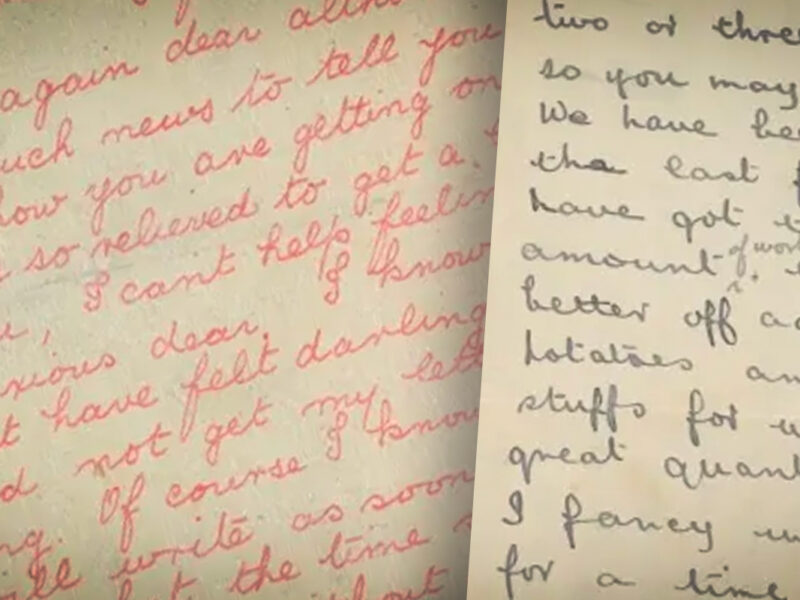 again dear
uch news to tell you
how you are getting on
so relieved to get a
, I cant help feelin
xious dear. I know
t have felt darling
d not get my lett
ng. Of course I know
ill write as soon
the time
two or three
so you may
We have bee
the last f
have got t
amount of wor
better off a
potatoes an
stuffs for u
great quant
I fancy
for a time